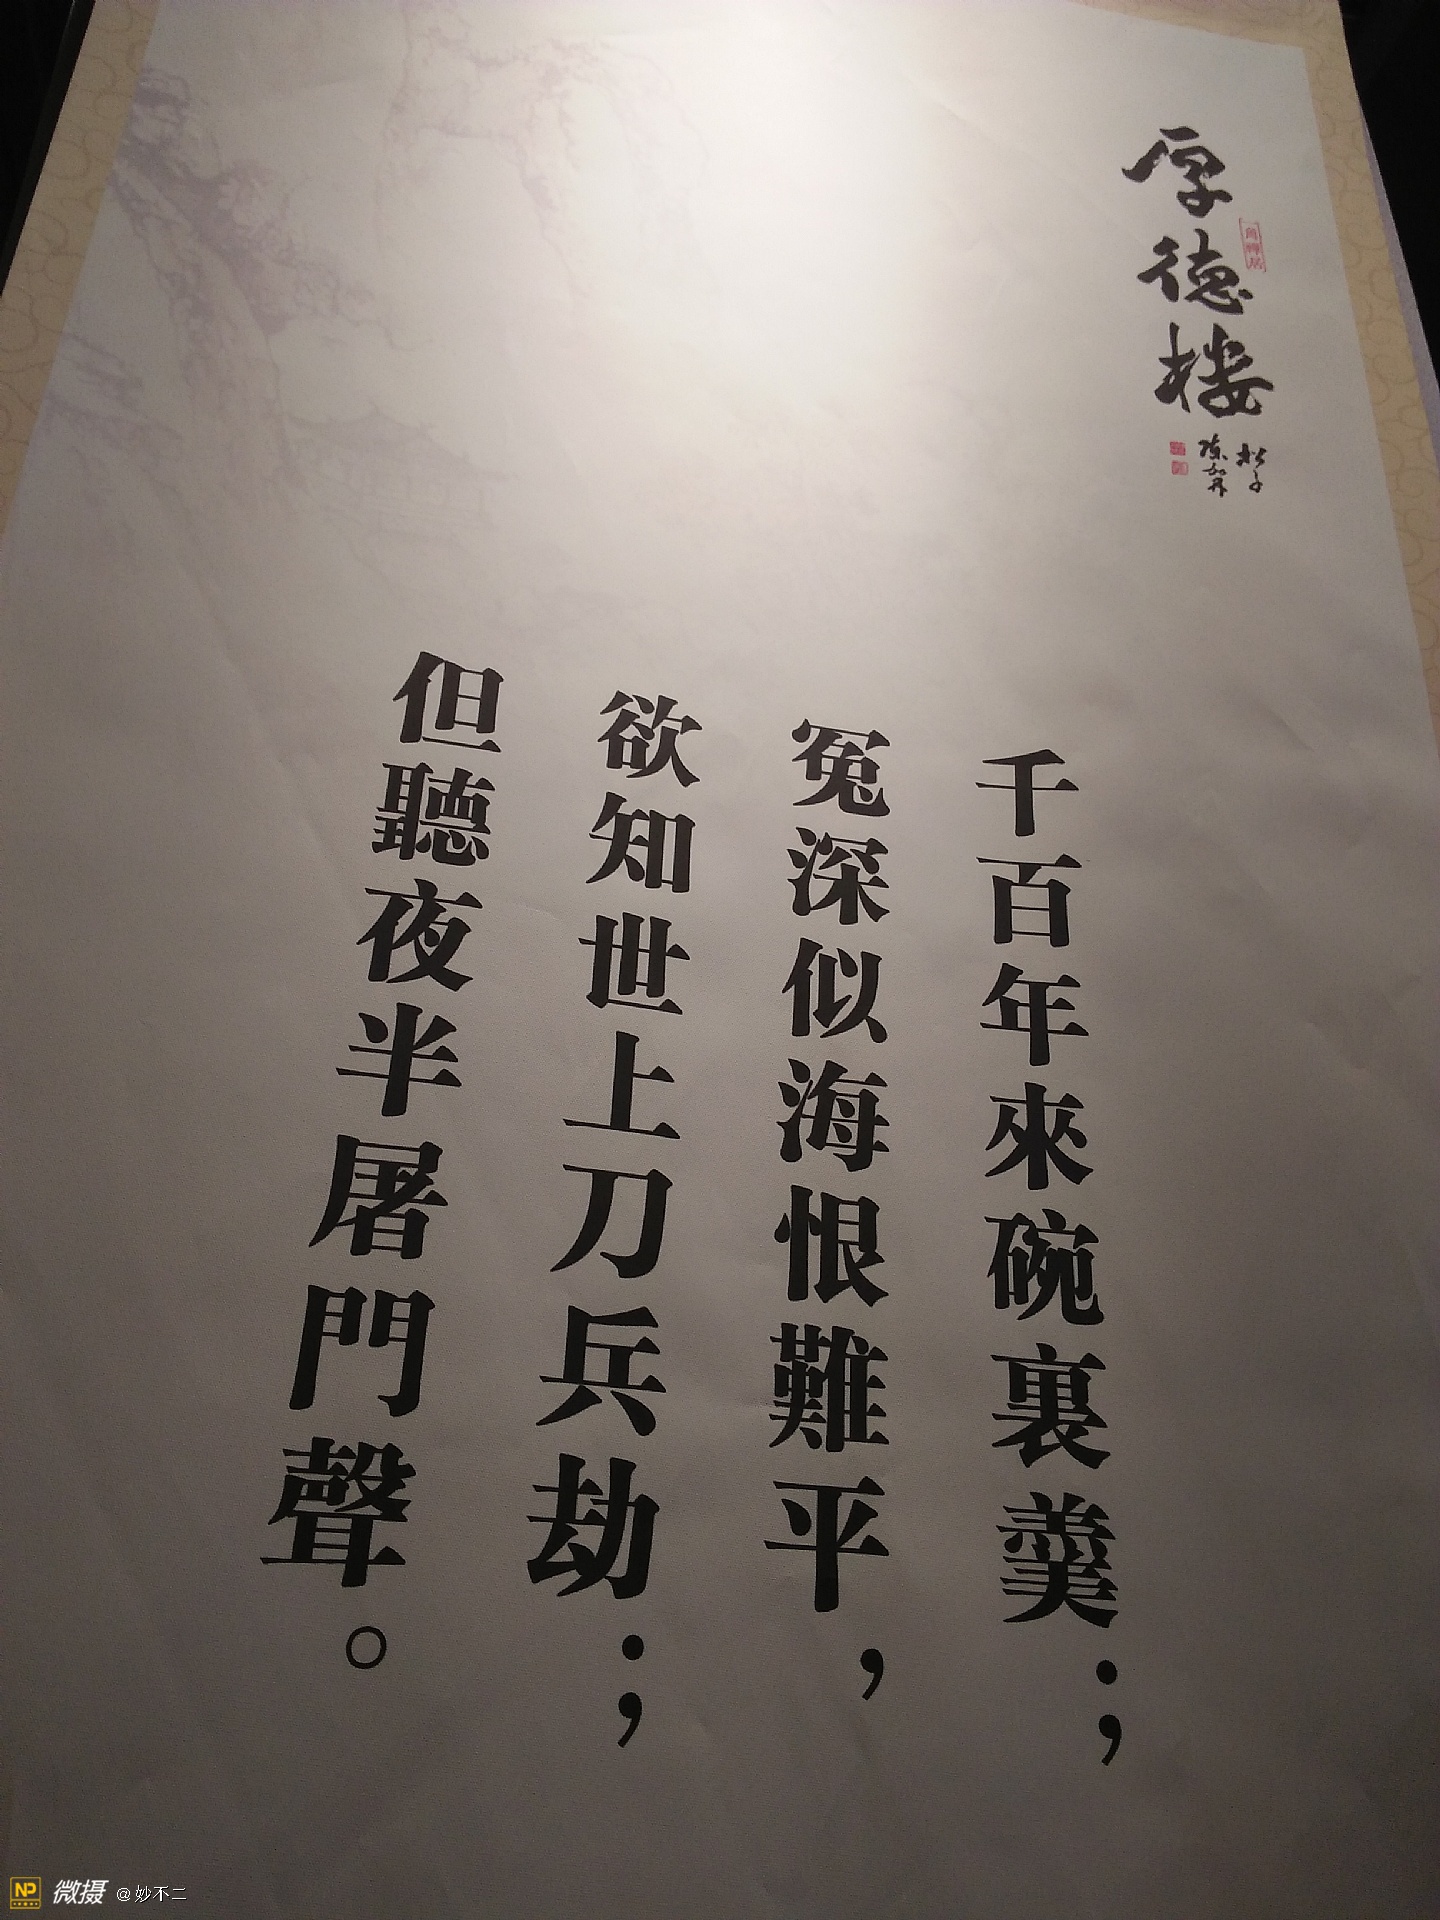 厚德楼
千百年來碗裏羹；
冤深似海恨難平，
欲知世上刀兵劫；
但聽夜半屠門聲。
NP 微摄 @妙不二